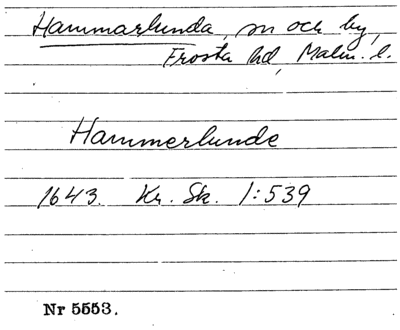 Hammarlunda, sn och by,
Frosta hd, Malm. l.
Hammerlunde
1643. Kr. Sk. 1:539
Nr 5553.